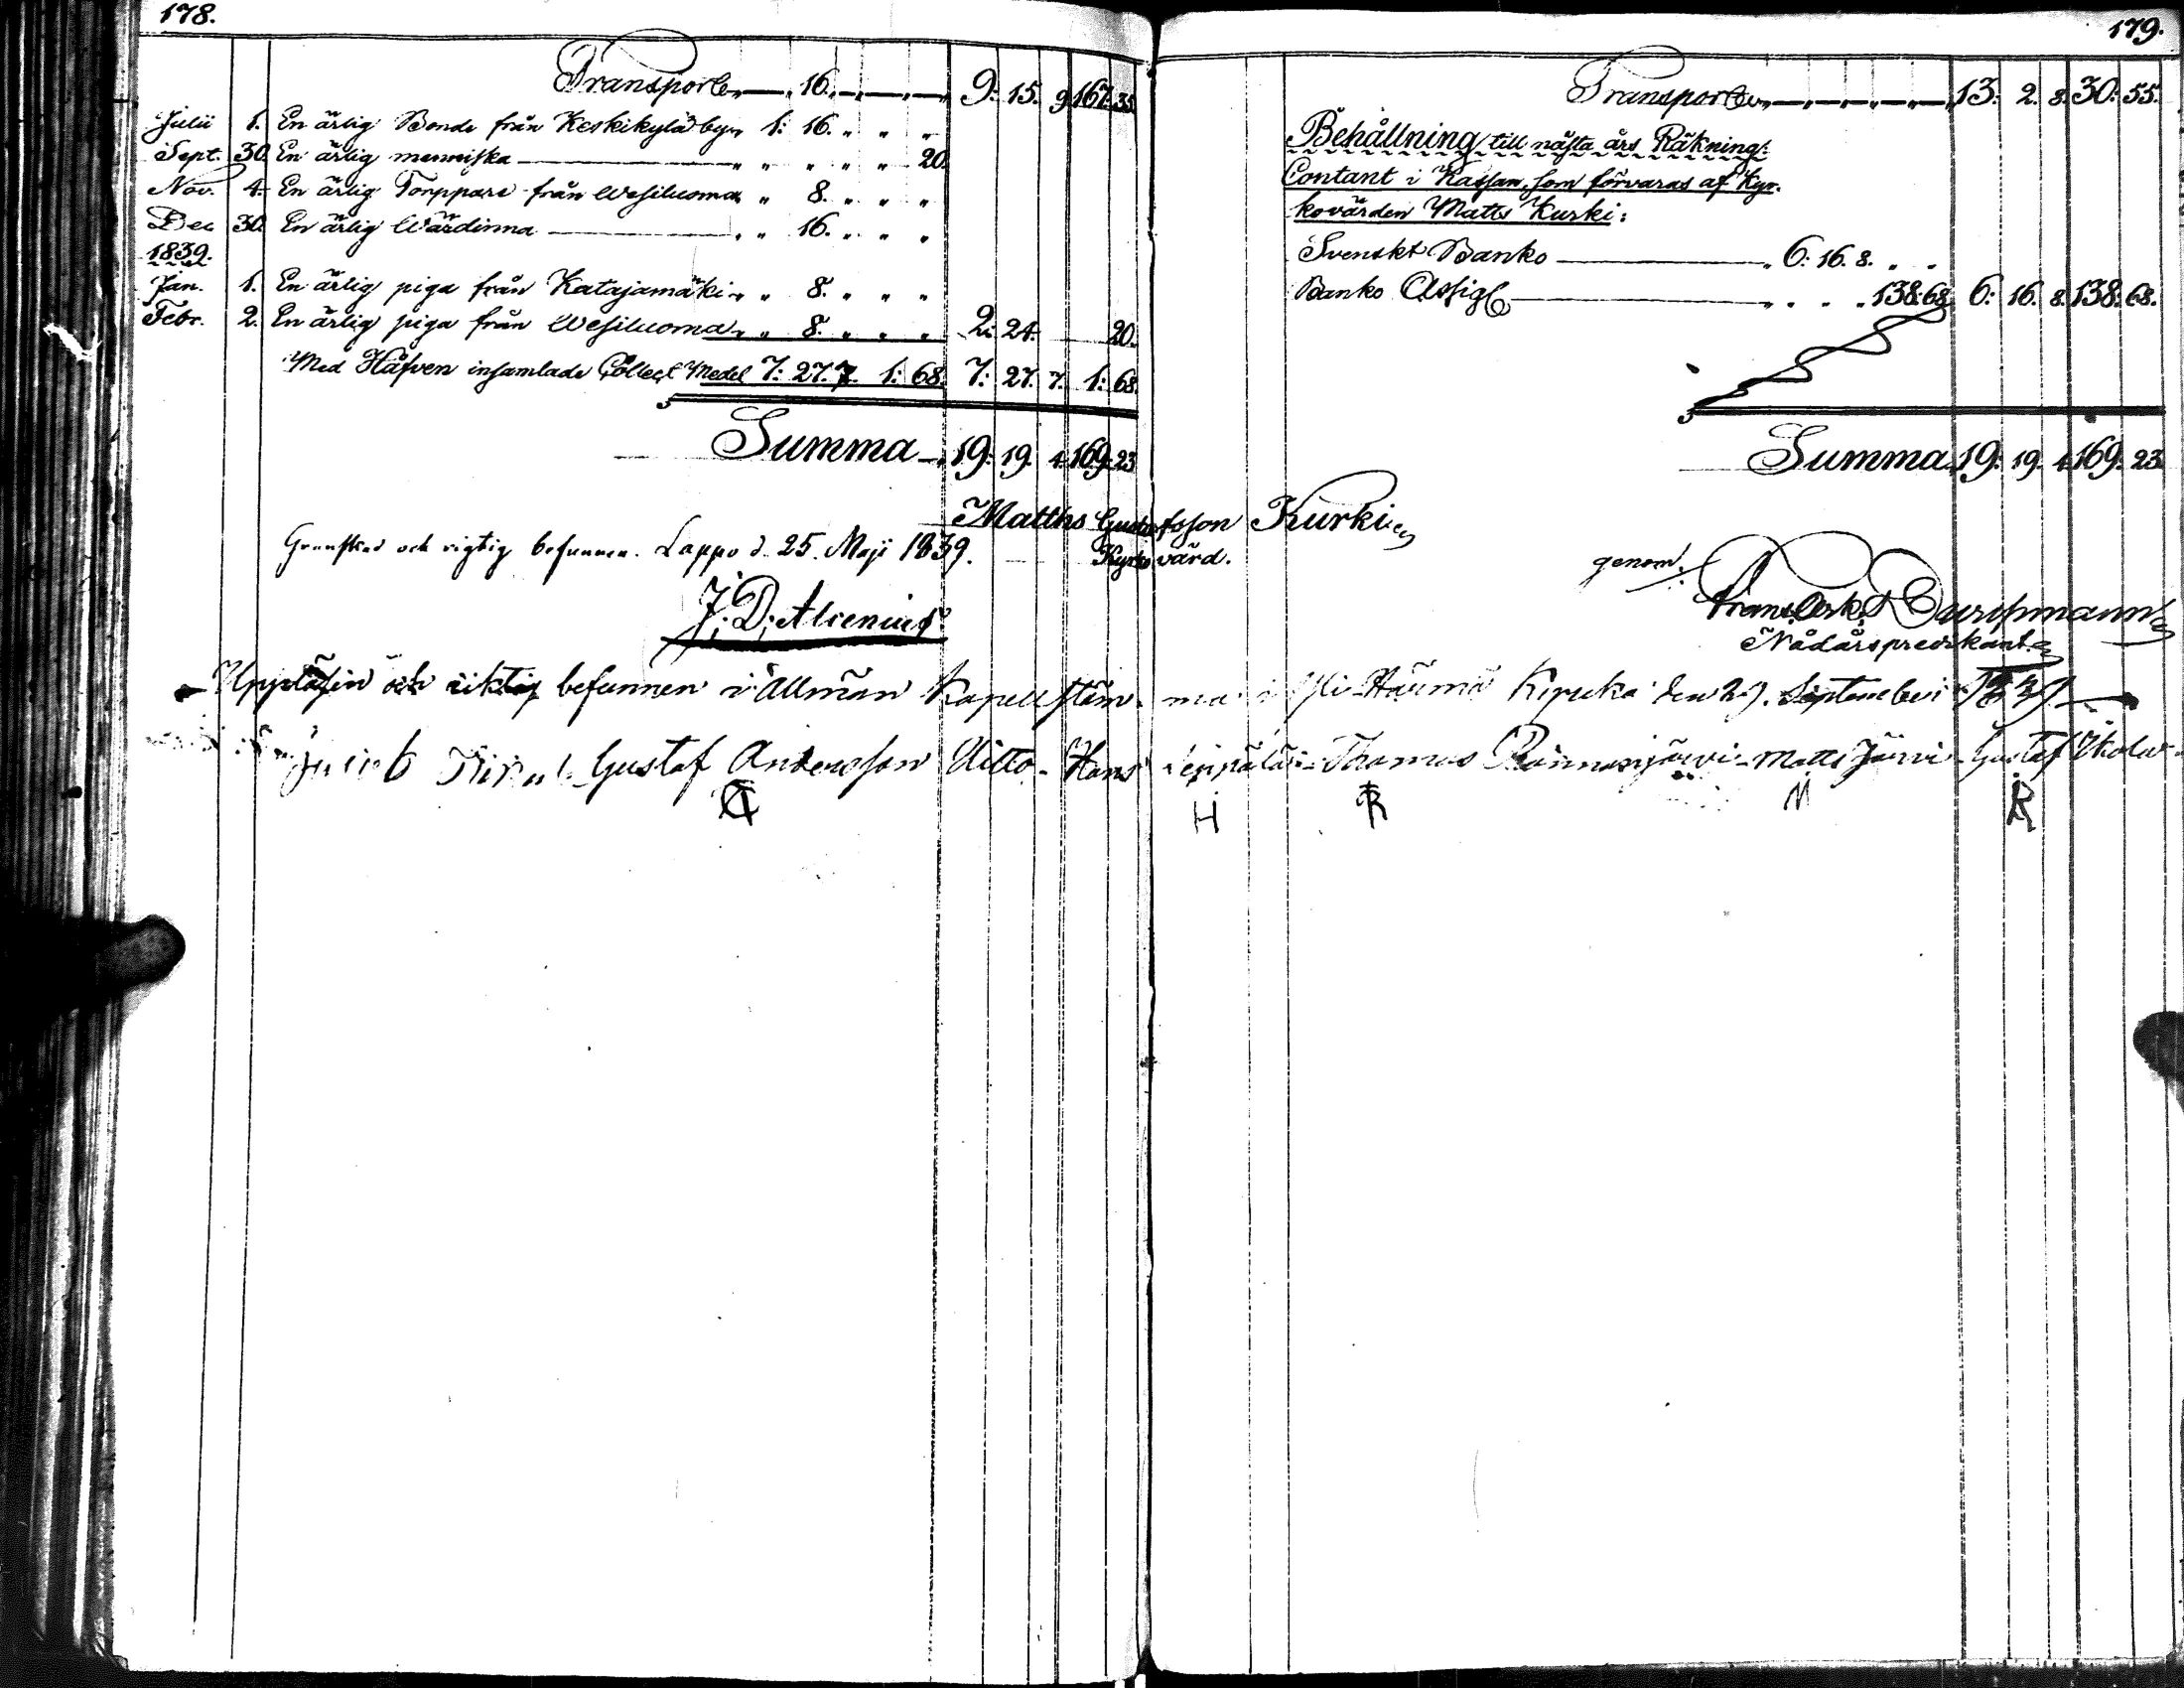 178.
Transport „ — „ 16. „ — „ — „ 9: 15. 9 167: 35
Julii 1. En ärlig Bonde från Keskikylä by „ 1: 16. „ „ „
Sept. 30. En ärlig menniska — „ „ „ „ „ 20.
Nov. 4. En ärlig Torppare från Wesiluoma „ „ 8. „ „ „
Dec 30. En ärlig Wärdinna — „ „ 16. „ „ „
1839.
Jan. 1. En ärlig piga från Katajamäki „ „ 8. „ „ „
Febr. 2. En ärlig piga från Wesiluoma „ „ 8. „ „ „ 2: 24. 20.
Med Håfven insamlade Collect Medel 7: 27. 7. 1: 68. 7: 27. 7. 1: 68.
Summa — 19: 19. 4. 169: 23
Matths Gustafsson Kurki
Kyrkovärd.
Granskad och rigtig befunnen. Lappo d. 25. Maji 1839.
J: D: Alcenius
179.
Transport „ — „ — „ — „ 13: 2. 8. 30: 55.
Behållning till nästa års Räkning:
Contant i Kassan, som förvaras af Kyr-
kovärden Matts Kurki:
Svenskt Banko — „ 6: 16. 8. „ „
Banko Assig — „ „ „ „ 138: 68. 6: 16. 8. 138: 68.
Summa 19: 19. 4. 169: 23.
genom:
Frans Osk.
Nådårspredikant
Uppläsin och riktig befunnen i Allmän Kapellstäm- ma i Yli-Härmä Kyrcka den 29. September 1839
Gustaf Andersson Uitto - Hans - Thomas - Matts Järvi - Gustaf
H R M R